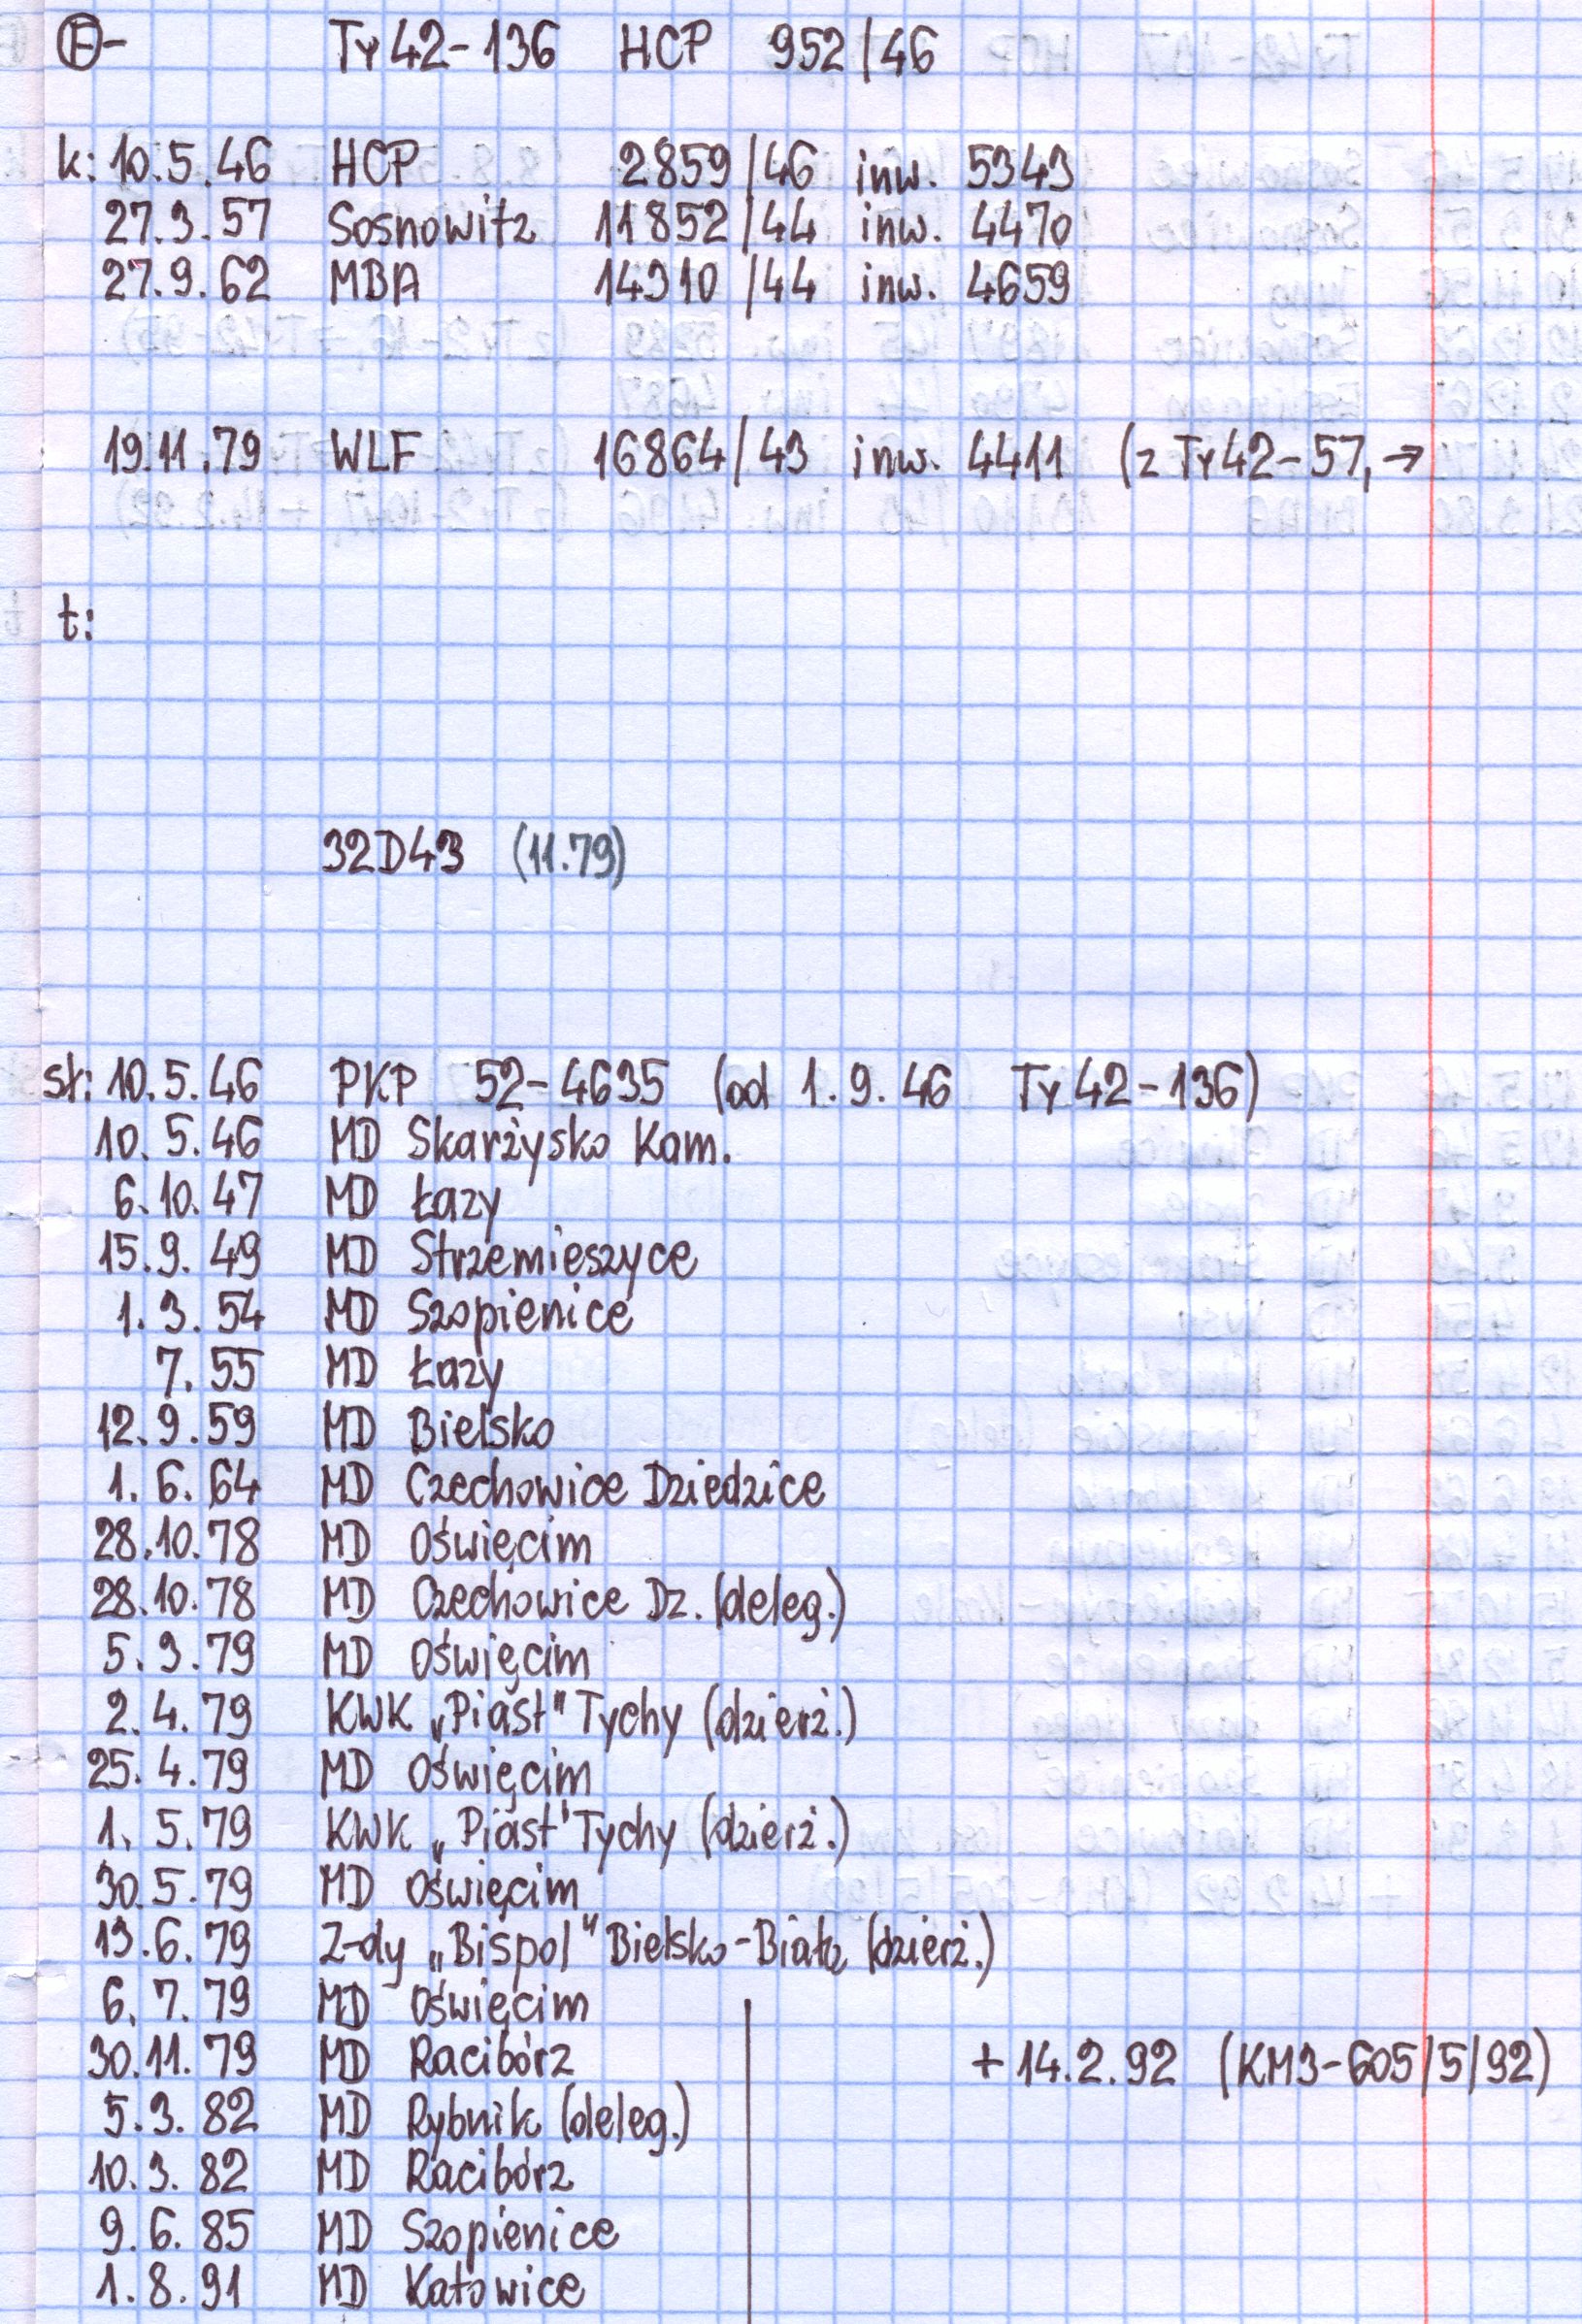 Ⓔ- Ty42-136 HCP 952/46
k: 10.5.46 HCP 2859/46 inw. 5343
27.3.57 Sosnowitz 11852/44 inw. 4470
27.9.62 MBA 14310/44 inw. 4659
19.11.79 WLF 16864/43 inw. 4411 (z Ty42-57, →
t:
32D43 (11.79)
st: 10.5.46 PKP 52-4635 (od 1.9.46 Ty42-136)
10.5.46 MD Skarżysko Kam.
6.10.47 MD Łazy
15.9.49 MD Strzemieszyce
1.3.54 MD Szopienice
7.55 MD Łazy
12.9.59 MD Bielsko
1.6.64 MD Czechowice Dziedzice
28.10.78 MD Oświęcim
28.10.78 MD Czechowice Dz. (deleg.)
5.3.79 MD Oświęcim
2.4.79 KWK „Piast" Tychy (dzierż.)
25.4.79 MD Oświęcim
1.5.79 KWK „Piast' Tychy (dzierż.)
30.5.79 MD Oświęcim
13.6.79 Z-dy „Bispol" Bielsko-Biała (dzierż.)
6.7.79 MD Oświęcim
30.11.79 MD Racibórz + 14.2.92 (KM3-605/5/92)
5.3.82 MD Rybnik (deleg.)
10.3.82 MD Racibórz
9.6.85 MD Szopienice
1.8.91 MD Katowice